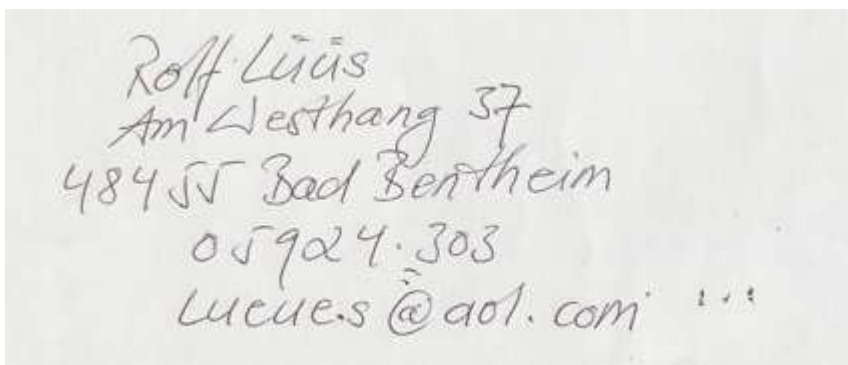 Rolf Lüüs
Am Westhang 37
48455 Bad Bentheim
05924.303
Lueues@aol.com